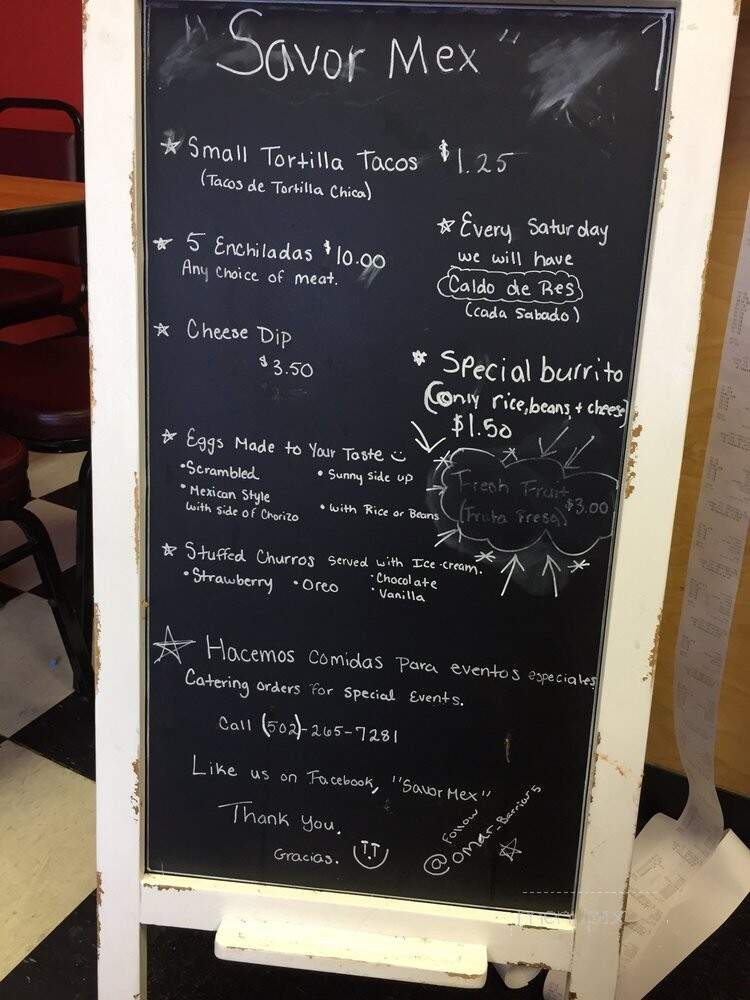 "Savor Mex"
Small Tortilla Tacos $1.25
(Tacos de Tortilla Chica)
5 Enchiladas $10.00
Any choice of meat.
Cheese Dip
$3.50
Every Saturday
we will have
Caldo de Res
(cada Sabado)
Special burrito
(Only rice, beans, + cheese)
$1.50
Eggs Made to Your Taste
• Scrambled
• Sunny side up
• Mexican Style
with side of Chorizo
• with Rice or Beans
Fresh Fruit
(Fruta Fresa)
$3.00
Stuffed Churros served with Ice-cream.
• Strawberry • Oreo • Chocolate
• Vanilla
Hacemos comidas para eventos especiales
Catering orders for special Events.
Call (502)-265-7281
Like us on Facebook, "Savor Mex"
Thank you.
Gracias.
Follow
@omar_Barrios